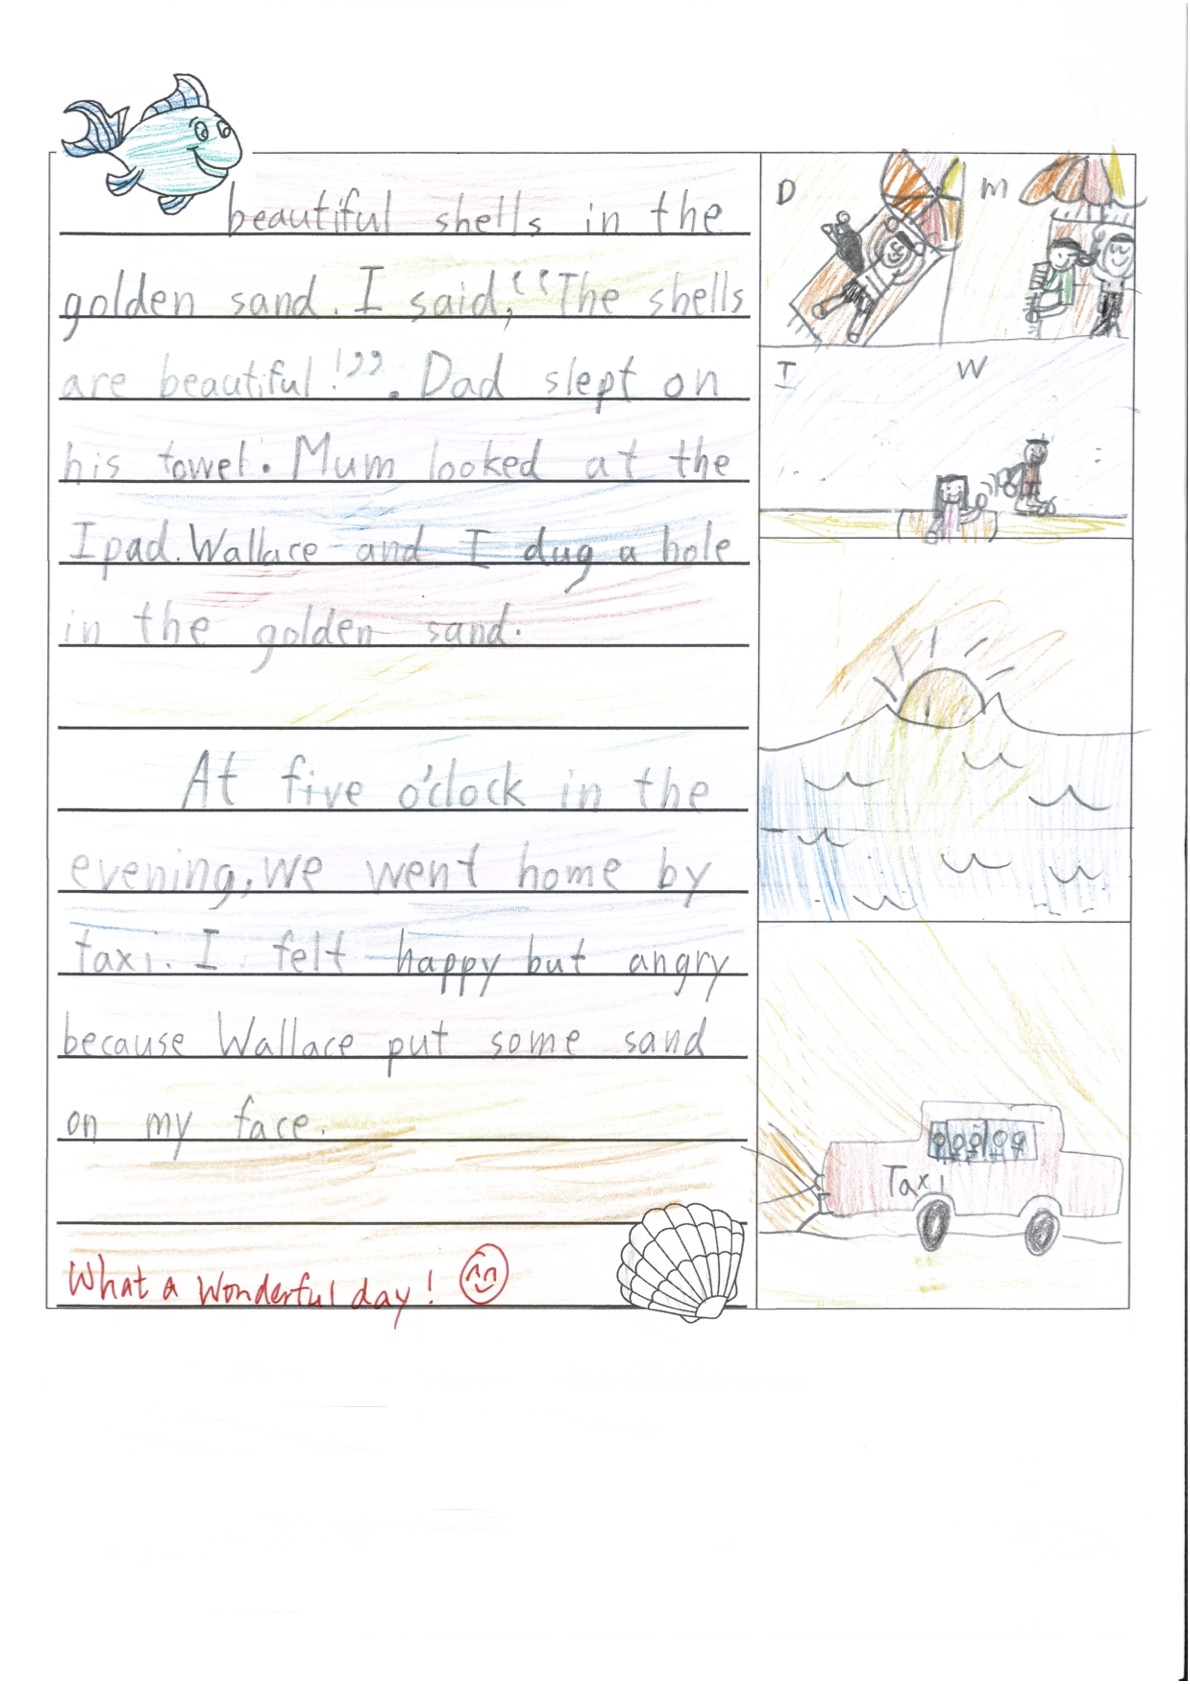 beautiful shells in the
golden sand. I said, “The shells
are beautiful!”. Dad slept on
his towel. Mum looked at the
Ipad. Wallace and I dug a hole
in the golden sand.
At five o'clock in the
evening, we went home by
taxi. I felt happy but angry
because Wallace put some sand
on my face.
What a Wonderful day!
D M
I W
Taxi